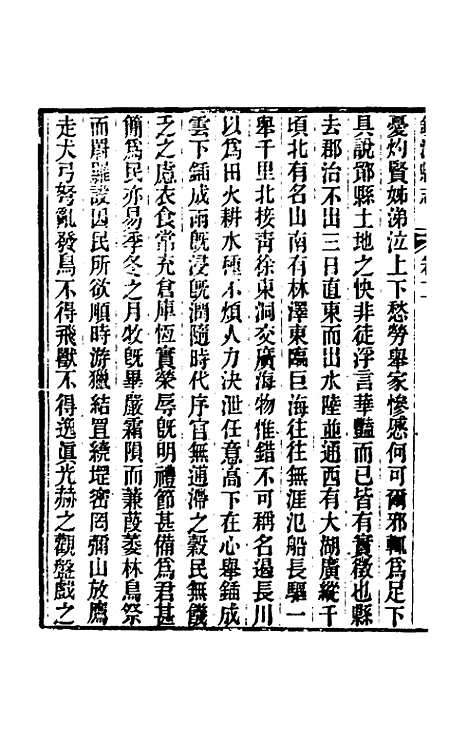 憂灼賢姊涕泣上下愁勞舉家慘慼何可爾邪輒為足下
具說鄮縣土地之快非徒浮言華豔而已皆有實徵也縣
去郡治不出三日直東而出水陸並通西有大湖廣縱千
頃北有名山南有林澤東臨巨海往往無涯氾船長驅一
舉千里北接青徐東洞交廣海物惟錯不可稱名遏長川
以為田火耕水種不煩人力決泄任意高下在心舉鍤成
雲下鍤成雨既浸既潤隨時代序官無逋滯之穀民無饑
乏之慮衣食常充倉庫恆實榮辱既明禮節甚備為君甚
簡為民亦易季冬之月牧既畢嚴霜隕而蒹葭萎林鳥祭
而罻羅設因民所欲順時游獵結罝繞堽密罔彌山放鷹
走犬弓弩亂發鳥不得飛獸不得逸真光赫之觀盤戲之